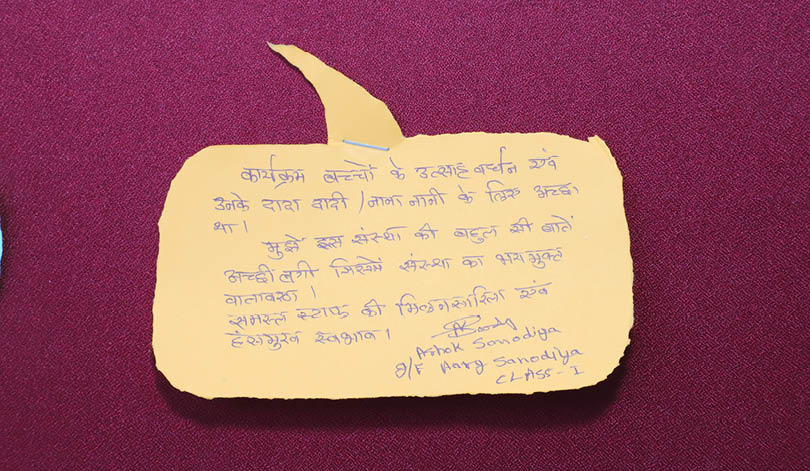 कार्यक्रम बच्चों के उत्साह वर्धन एवं
उनके दादा दादी / नाना नानी के लिए अच्छा
था।
मुझे इस संस्था की बहुत सी बातें
अच्छी लगी जिसमें संस्था का भय मुक्त
वातावरण।
समस्त स्टाफ की मिलनसारिता एवं
हँसमुख स्वभाव।
Ashok Sanodiya
Aarv Sanodiya
CLASS - I